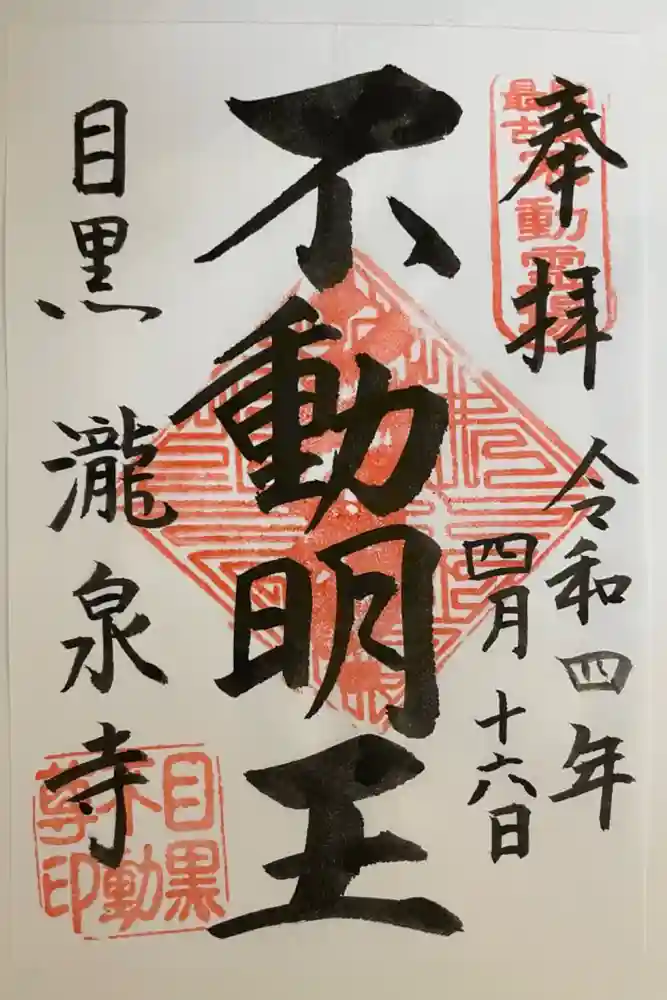 奉拝
令和四年
四月十六日
不動明王
目黒 瀧泉寺
最古不動霊場
目黒
不動
尊印